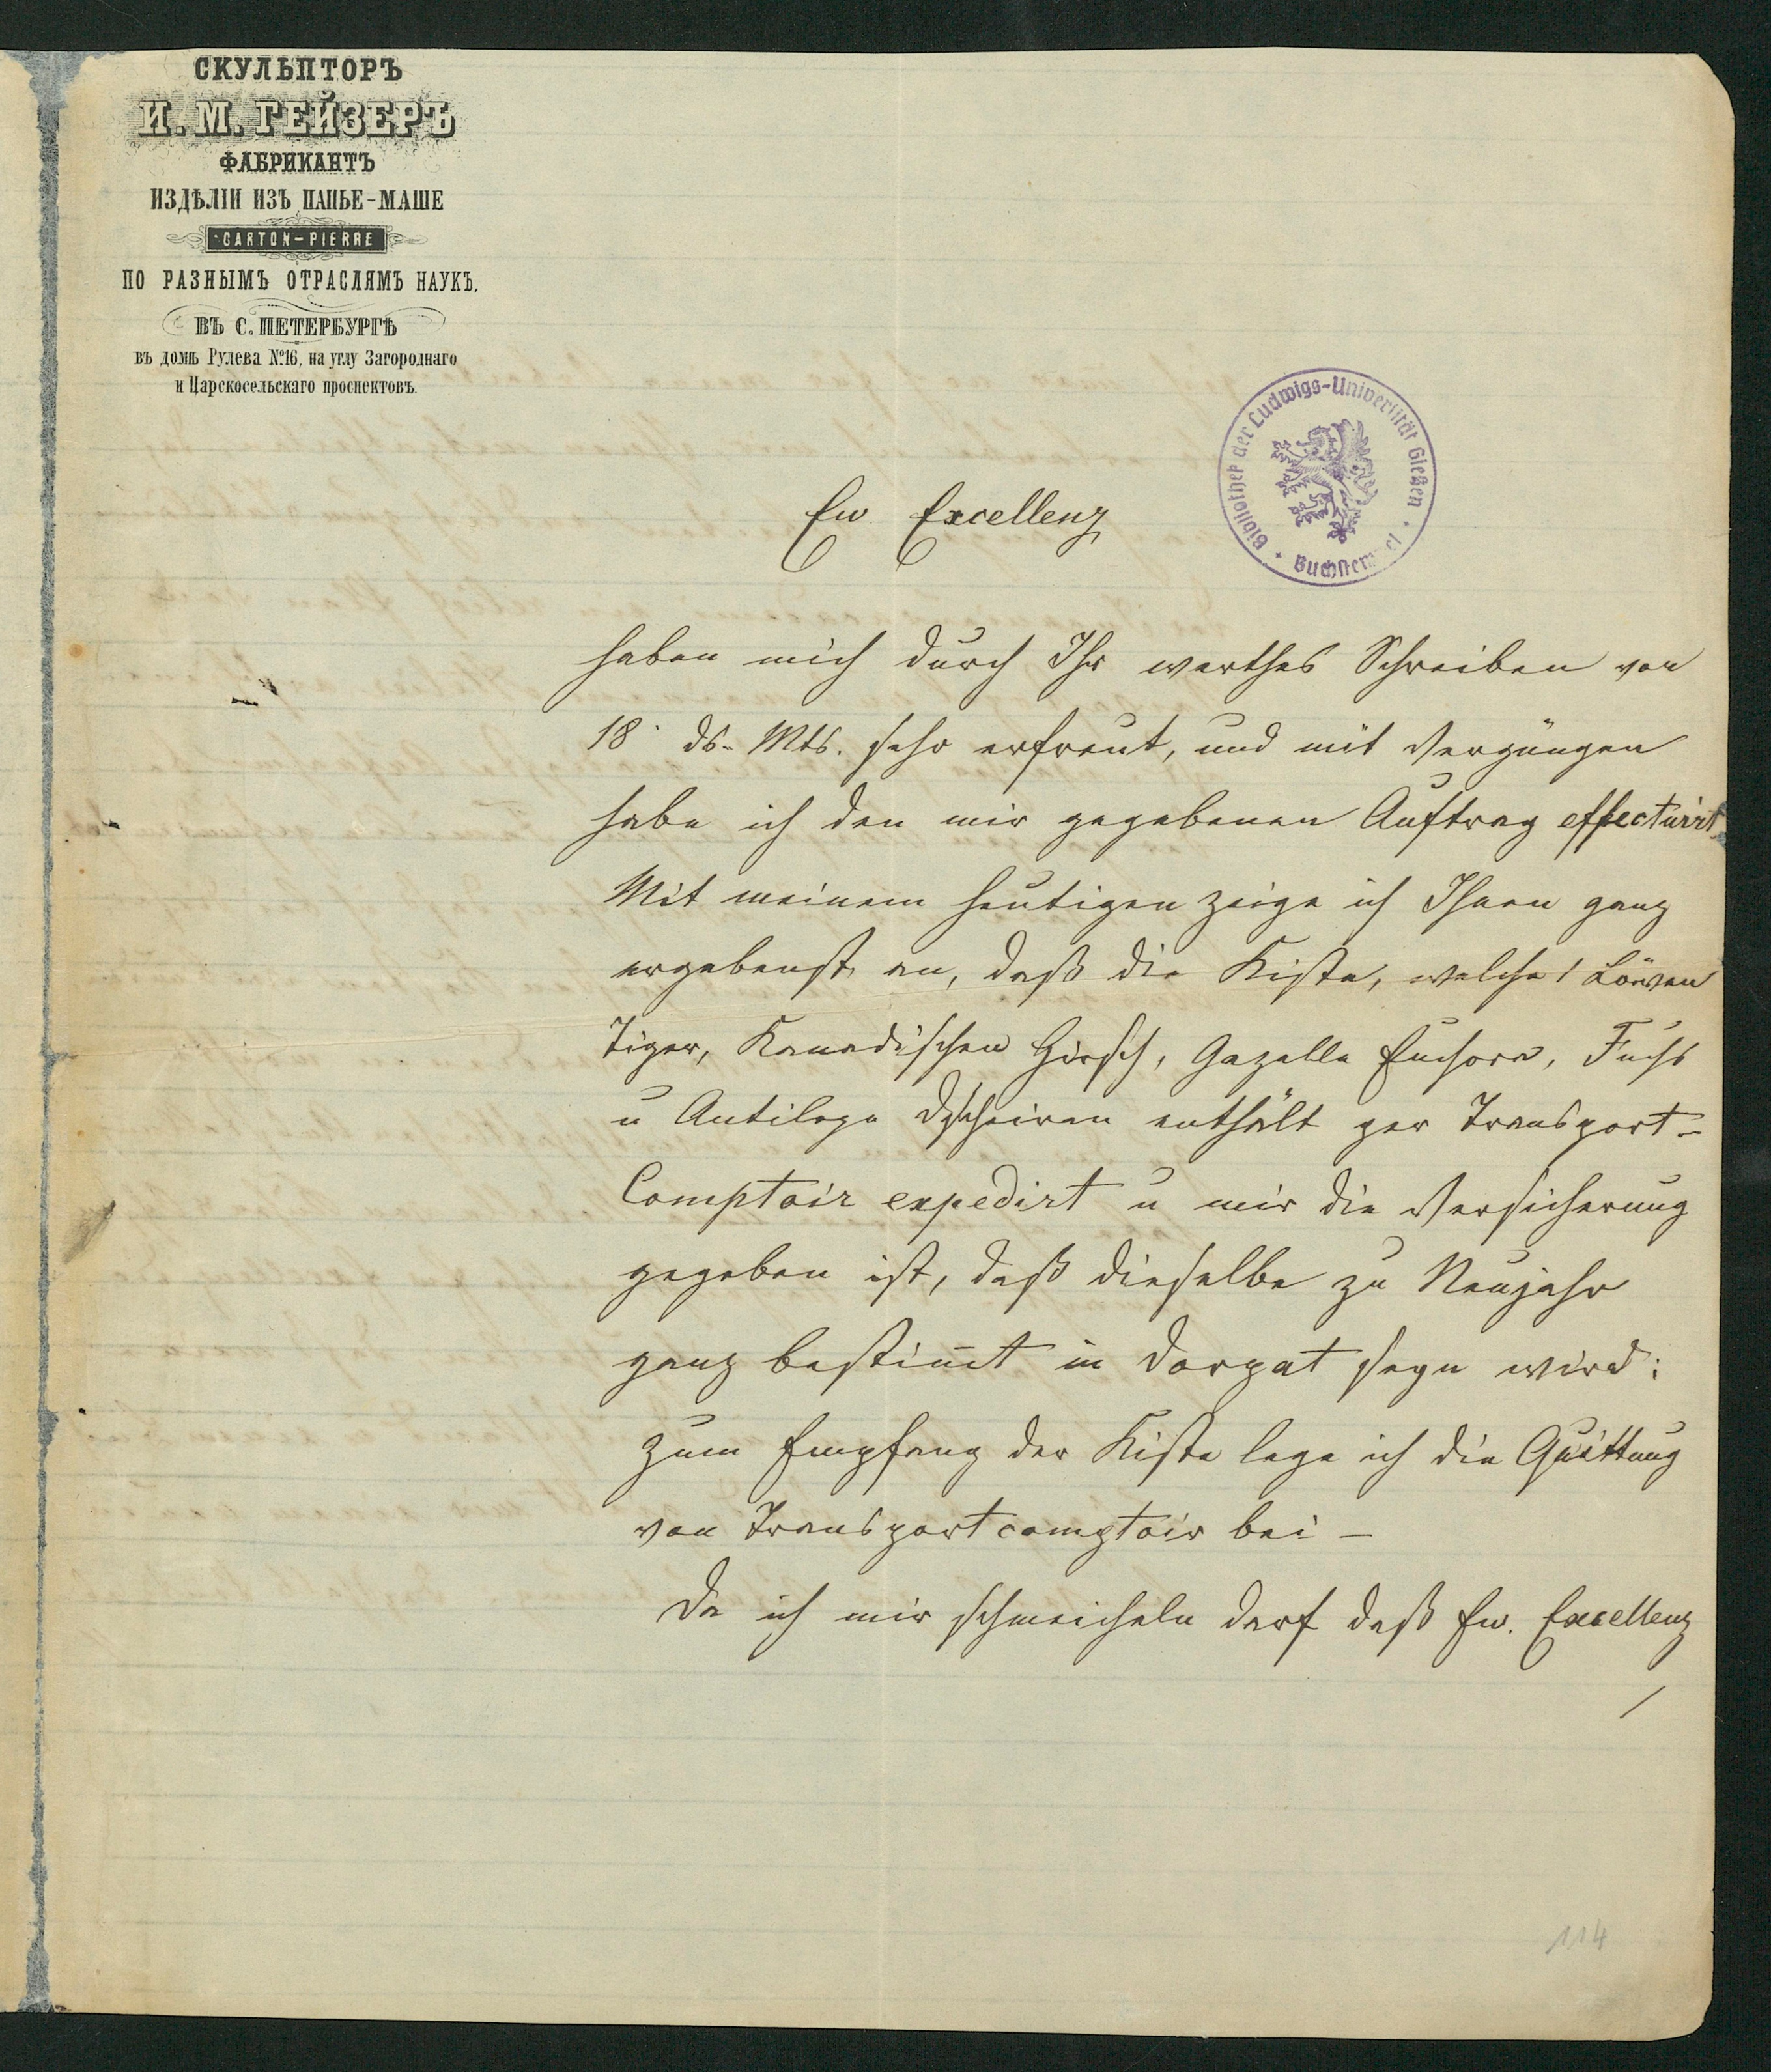 СКУЛЬПТОРЪ
И. М. ГЕЙЗЕРЪ
ФАБРИКАНТЪ
ИЗДѢЛІЙ ИЗЪ ПАПЬЕ-МАШЕ
CARTON-PIERRE
ПО РАЗНЫМЪ ОТРАСЛЯМЪ НАУКЪ,
ВЪ С. ПЕТЕРБУРГѢ
въ домѣ Рулева №16, на углу Загороднаго
и Царскосельскаго проспектовъ.
Bibliothek der Ludwigs-Universität Gießen
Ew Excellenz
haben mich durch Ihr werthes Schreiben von
18. ds. Mts. sehr erfreut, und mit Vergüngen
habe ich den mir gegebenen Auftrag effectuirt
Mit meinem heutigen zeige ich Ihnen ganz
ergebenst an, daß die Kiste, welche 1 Löwen
Tiger, Kanadischen Hirsch, Gazelle, Fuchs
u Antilope enthält per Transport-
Comptoir expedirt u mir die Versicherung
gegeben ist, daß dieselbe zu Neujahr
ganz bestimt in Dorpat seyn wird;
Zum Empfang der Kiste lege ich die Quittung
von Transportcomptoir bei –
Da ich mir schmeicheln darf daß Ew. Excellenz
/
114